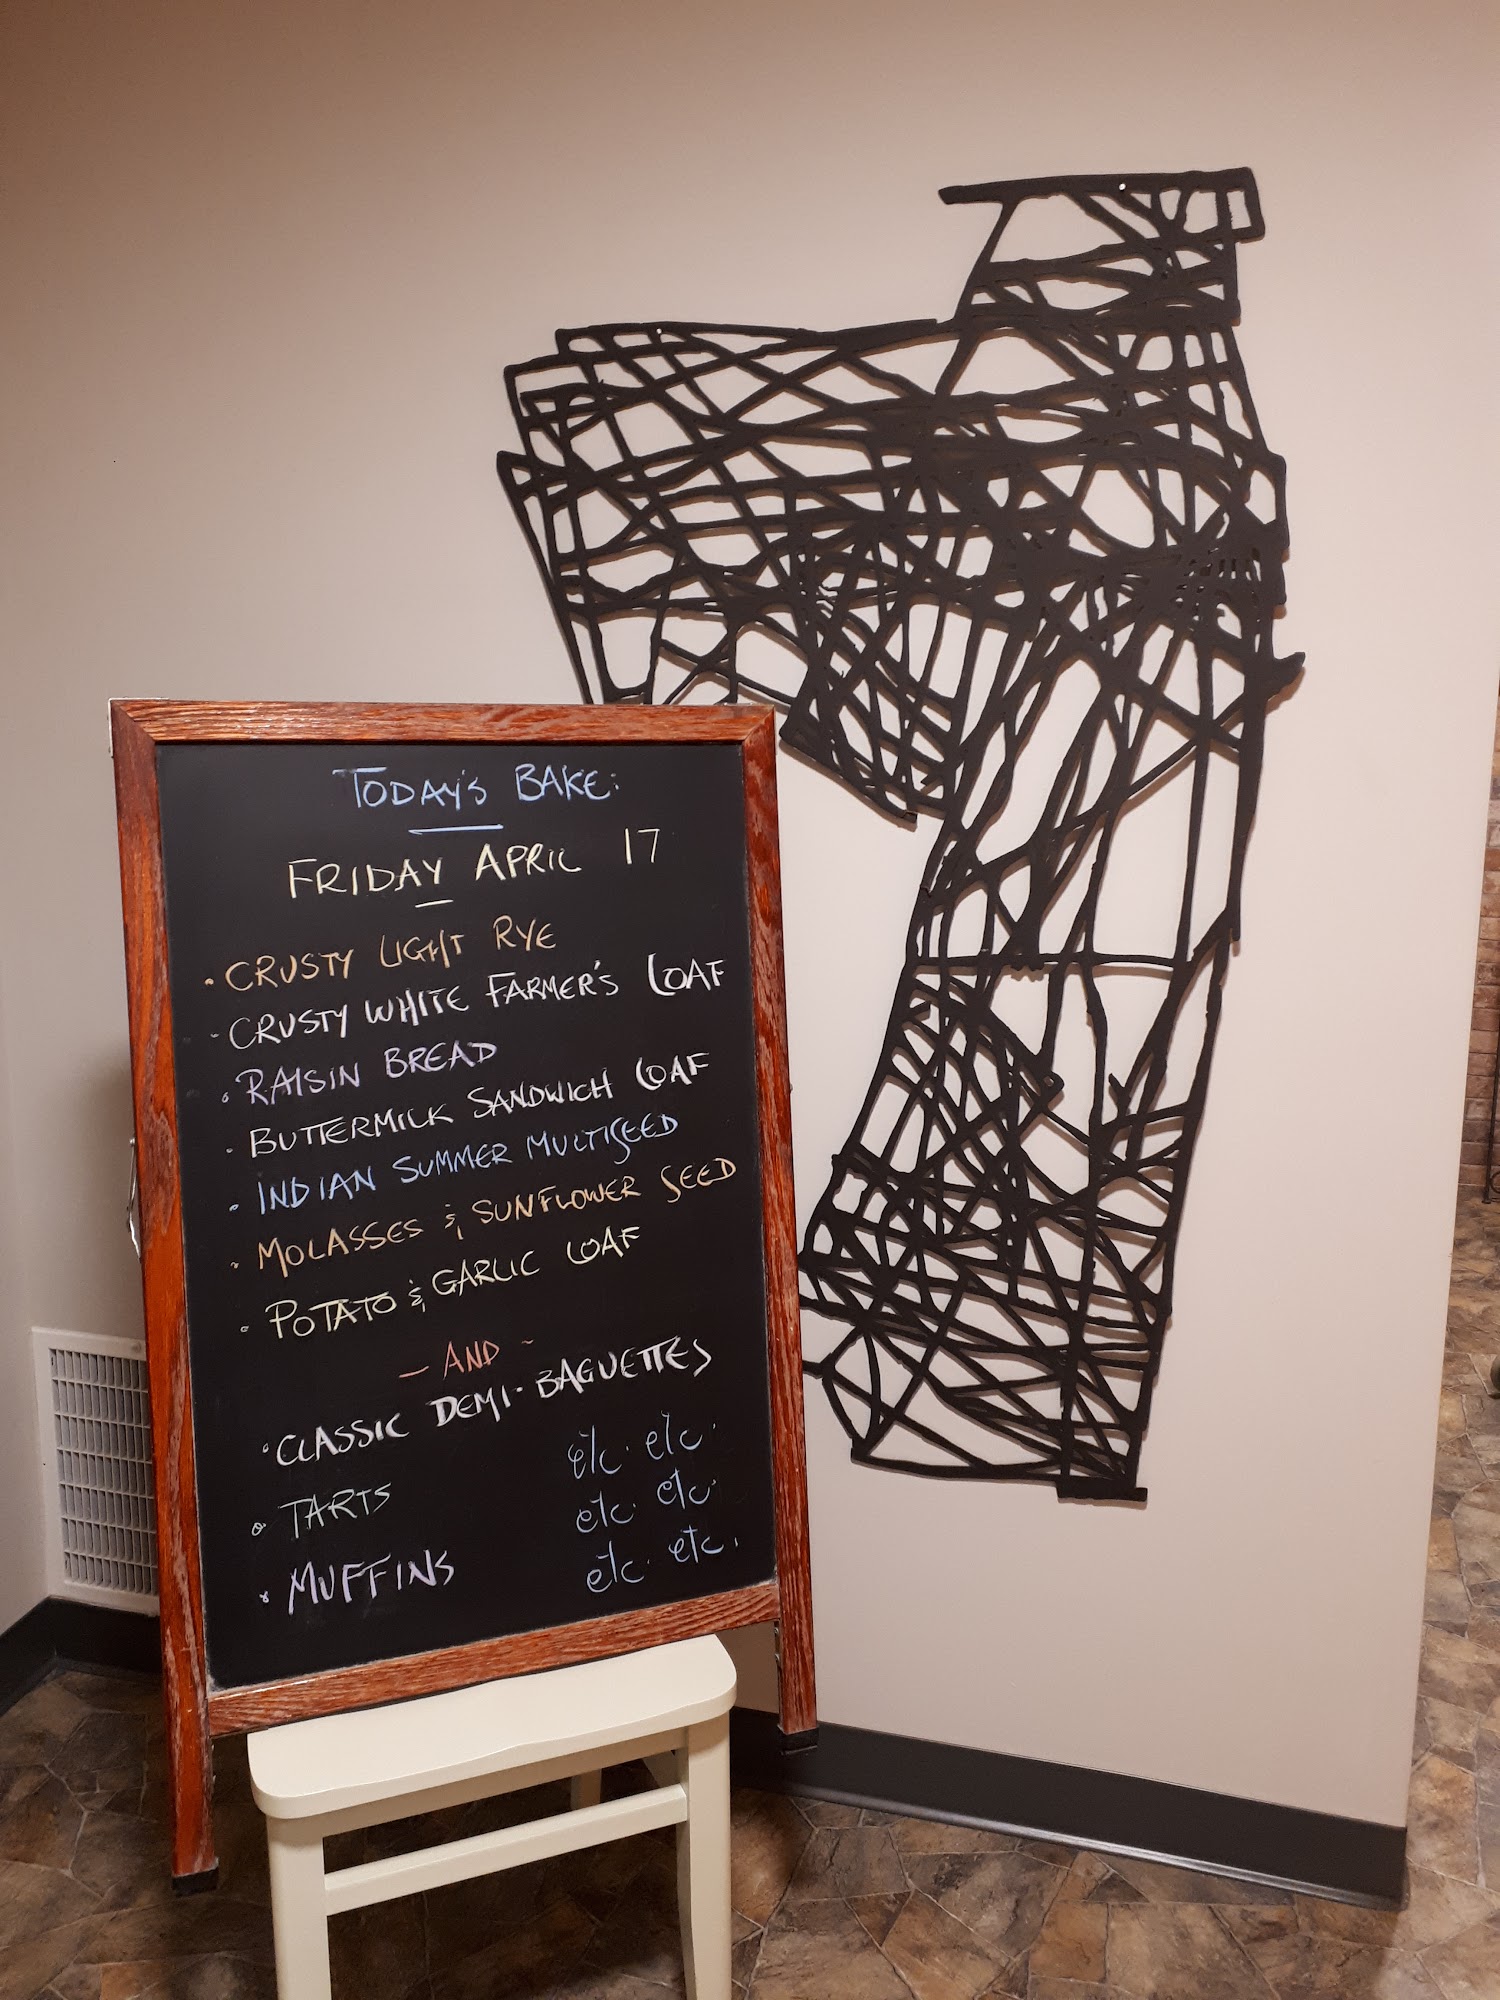 TODAY'S BAKE:
FRIDAY APRIL 17
• CRUSTY LIGHT RYE
• CRUSTY WHITE FARMER'S LOAF
• RAISIN BREAD
• BUTTERMILK SANDWICH LOAF
• INDIAN SUMMER MULTISEED
• MOLASSES & SUNFLOWER SEED
• POTATO & GARLIC LOAF
- AND -
• CLASSIC DEMI-BAGUETTES
etc. etc.
• TARTS
etc. etc.
• MUFFINS
etc. etc.